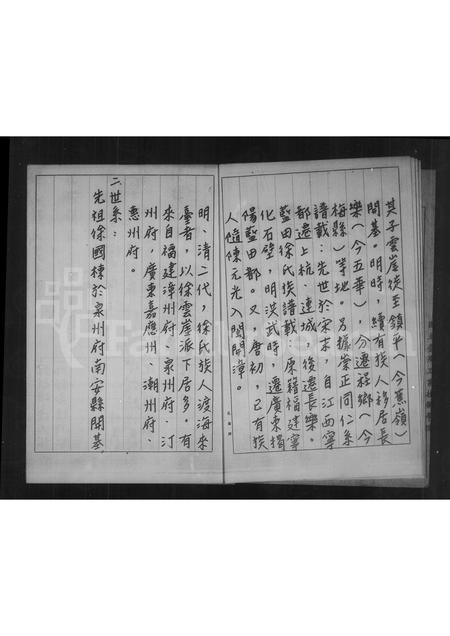 其子雲崖徙至鎮平(今蕉嶺)
開基。明時,續有族人移居長
樂(今五華)、分遷程鄉(今
梅縣)等地。另據崇正同仁系
譜載:先世於宋末,自江西寧
都遷上杭、連城,後遷長樂。
藍田徐氏族譜載,原籍福建寧
化石壁,明洪武時,遷廣東揭
陽藍田都。又,唐初,已有族
人隨陳元光入閩開漳。
明、清二代,徐氏族人渡海來
臺者,以徐雲崖派下居多。有
來自福建漳州府、泉州府、汀
州府,廣東嘉應州、潮州府、
惠州府。
二世系:
先祖徐國棟於泉州府南安縣開基